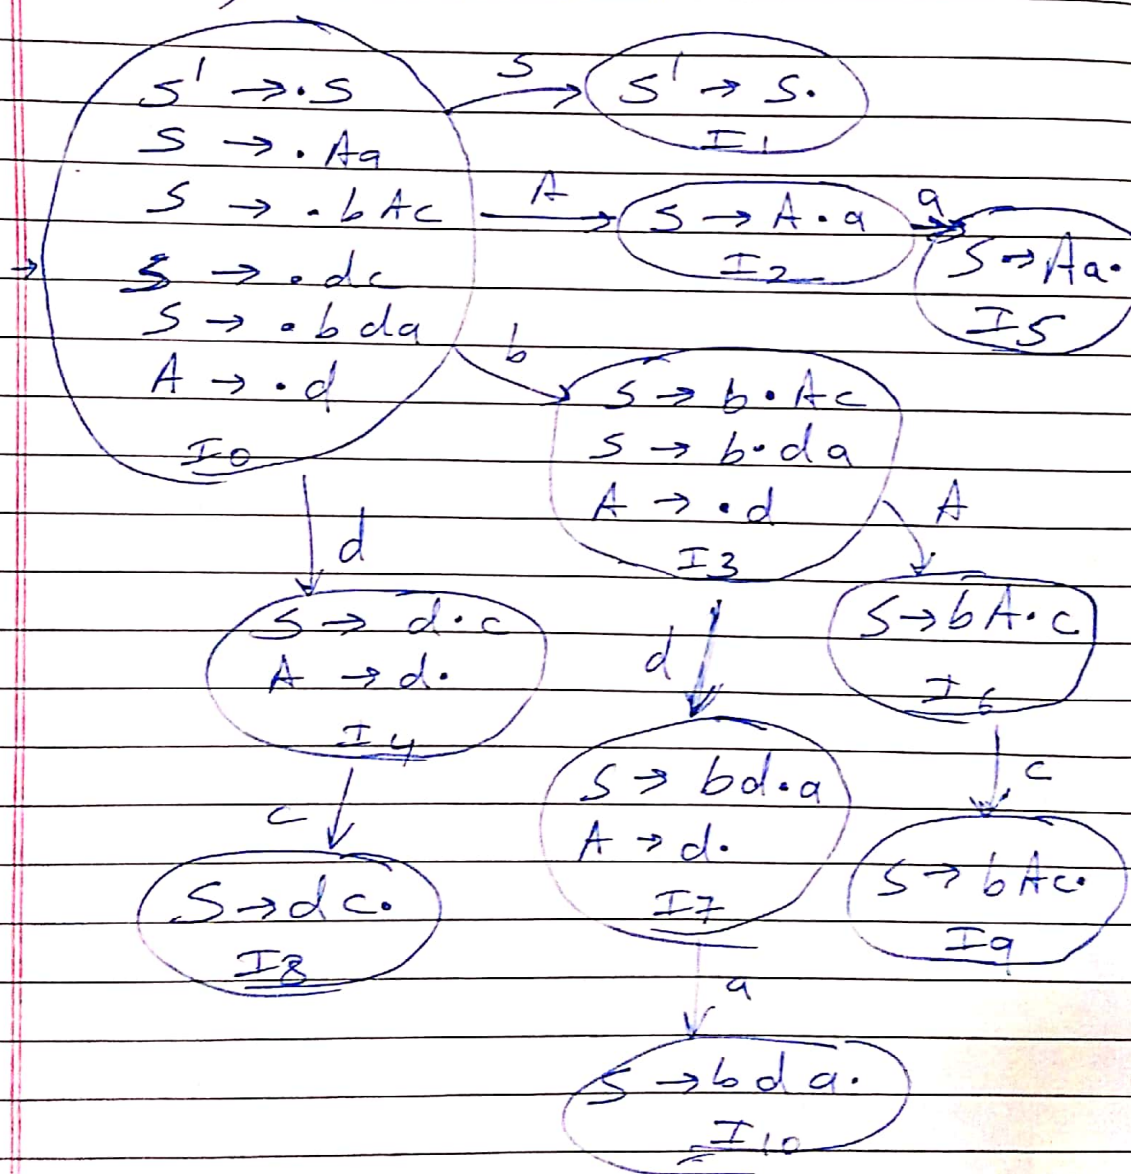 S' → .S
S → .Aa
S → .bAc
S → .dc
S → .bda
A → .d
I0
S
S' → S.
I1
A
S → A.a
I2
a
S → Aa.
I5
b
S → b.Ac
S → b.da
A → .d
I3
A
S → bA.c
I6
d
S → d.c
A → d.
I4
d
S → bd.a
A → d.
I7
c
S → bAc.
I9
c
S → dc.
I8
a
S → bda.
I10